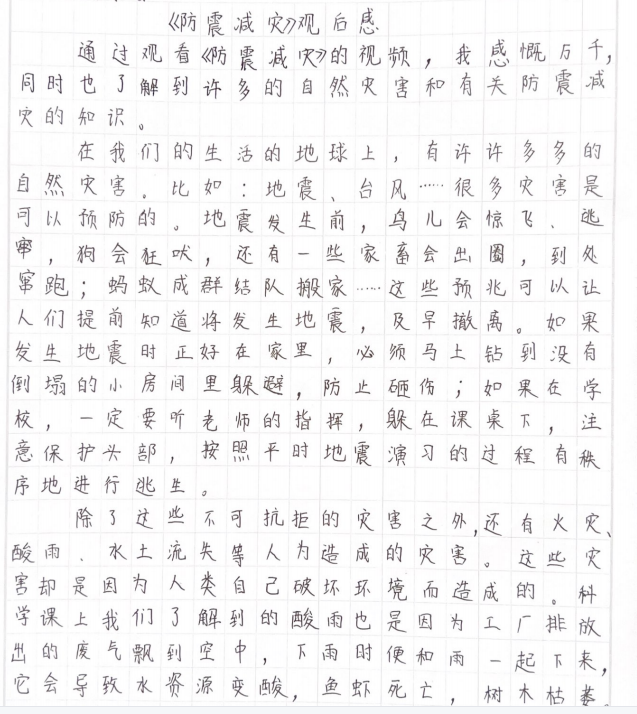 《防震减灾》观后感
通过观看《防震减灾》的视频，我感慨万千，
同时也了解到许多的自然灾害和有关防震减
灾的知识。
在我们的生活的地球上，有许许多多的
自然灾害。比如：地震、台风……很多灾害是
可以预防的。地震发生前，鸟儿会惊飞、逃
窜，狗会狂吠，还有一些家畜会出圈，到处
窜跑；蚂蚁成群结队搬家……这些预兆可以让
人们提前知道将发生地震，及早撤离。如果
发生地震时正好在家里，必须马上钻到没有
倒塌的小房间里躲避，防止砸伤；如果在学
校，一定要听老师的指挥，躲在课桌下，注
意保护头部，按照平时地震演习的过程有秩
序地进行逃生。
除了这些不可抗拒的灾害之外，还有火灾、
酸雨、水土流失等人为造成的灾害。这些灾
害却是因为人类自己破坏环境而造成的。科
学课上我们了解到的酸雨也是因为工厂排放
出的废气飘到空中，下雨时便和雨一起下来，
它会导致水资源变酸，鱼虾死亡，树木枯萎，